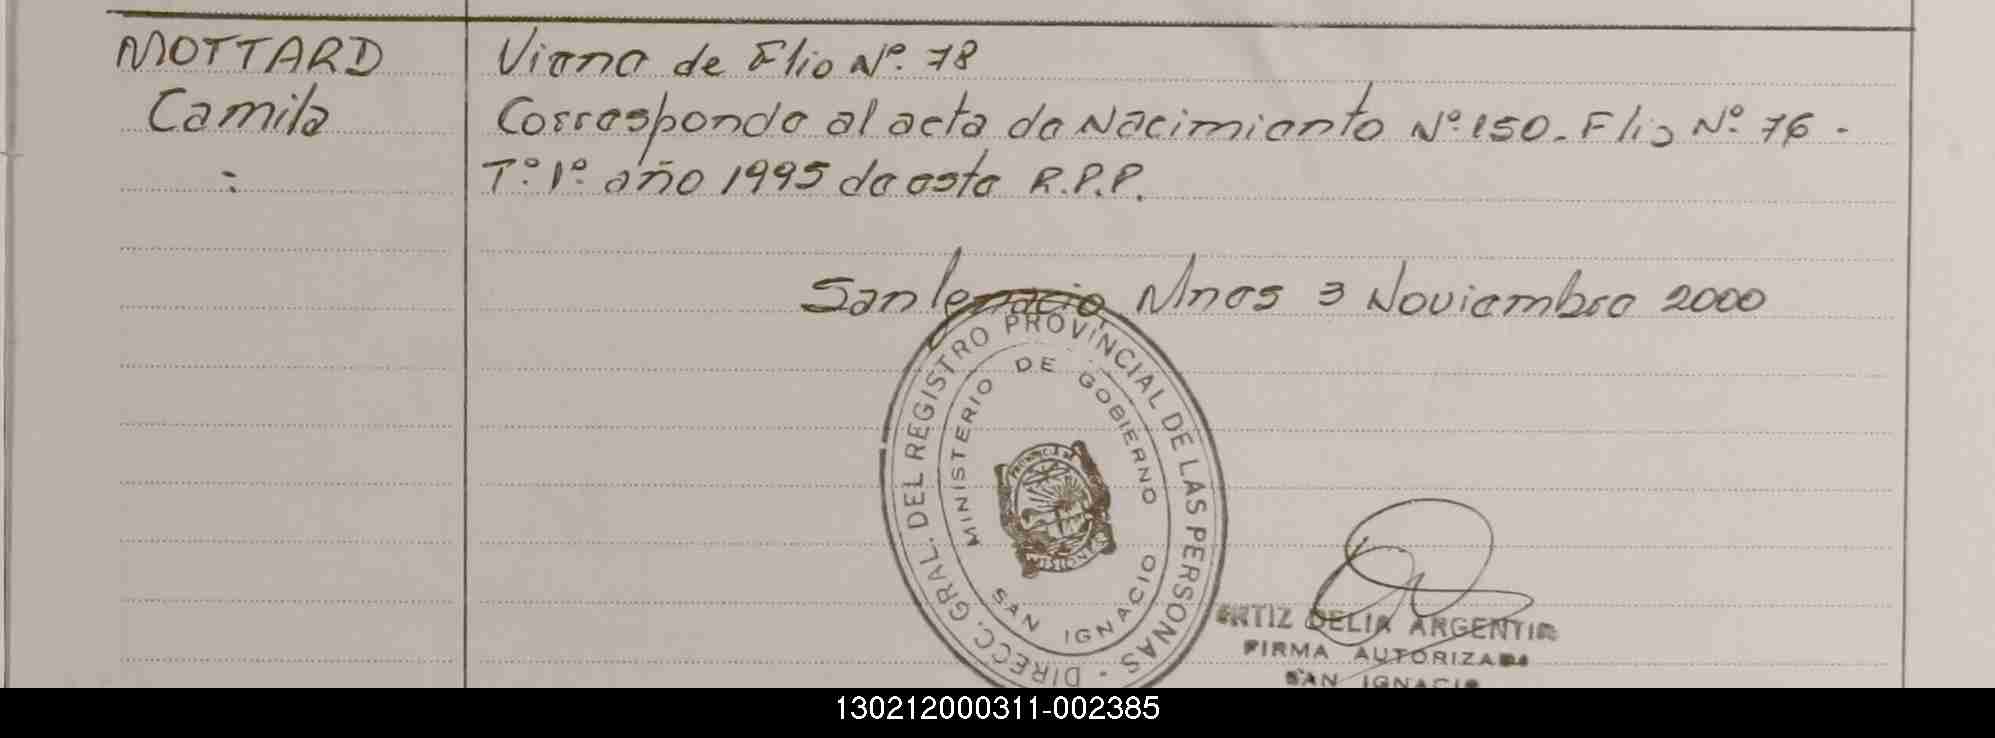 MOTTARD
Camila
Viene de Flio Nº. 78
Corresponde al acta de Nacimiento Nº 150. Flio Nº. 76.
Tº. 1º. año 1995 de este R.P.P.
San Ignacio Mnes 3 Noviembre 2000
DIRECC. GRAL. DEL REGISTRO PROVINCIAL DE LAS PERSONAS -
MINISTERIO DE GOBIERNO
PROVINCIA DE
MISIONES
SAN IGNACIO
ORTIZ DELIA ARGENTIN
FIRMA AUTORIZADA
SAN IGNACIO
130212000311-002385